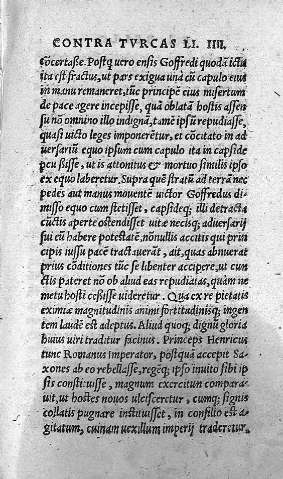 CONTRA TVRCAS LI. IIII.
cõcertasse. Postq̃ uero ensis Goffredi quodã ictu
ita est fractus, ut pars exigua unà cũ capulo eius
in manu remaneret, tũc principẽ eius misertum
de pace agere incepisse, quã oblatã hostis assen
su nõ omnino illo indignã, tamẽ ipsũ repudiasse,
quasi uicto leges imponerẽtur, et cõcitato in ad
uersariũ equo ipsum cum capulo ita in capside
pcussisse, ut is attonitus & mortuo similis ipso
ex equo laberetur. Supra quẽ stratũ ad terrã nec
pedes aut manus mouentẽ uictor Goffredus di-
misso equo cum stetisset, capsideq; illi detracta
cũctis aperte ostendisset uitæ necisq; aduersarij
sui eũ habere potestatẽ, nõnullis accitis qui prin
cipis iussu pacẽ tractauerãt, ait, quas abnuerat
prius cõditiones tũc se libenter accipere, ut cun
ctis pateret nõ ob aliud eas repudiatas, quàm ne
metu hosti cessisse uideretur. Qua ex re pietatis
eximiæ magnitudinis animi fortitudinisq; in-
gentem laudẽ est adeptus. Aliud quoq; dignũ gloria
huius uiri traditur facinus. Princeps Henricus
tunc Romanus Imperator, postquã accepit Sa-
xones ab eo rebellasse, regẽq; ipso inuito sibi ip
sis constituisse, magnum exercitum compara-
uit, ut hostes nouos ulcisceretur, cumq; signis
collatis pugnare instituisset, in consilio est a-
gitatum, cuinam uexillum imperij traderetur